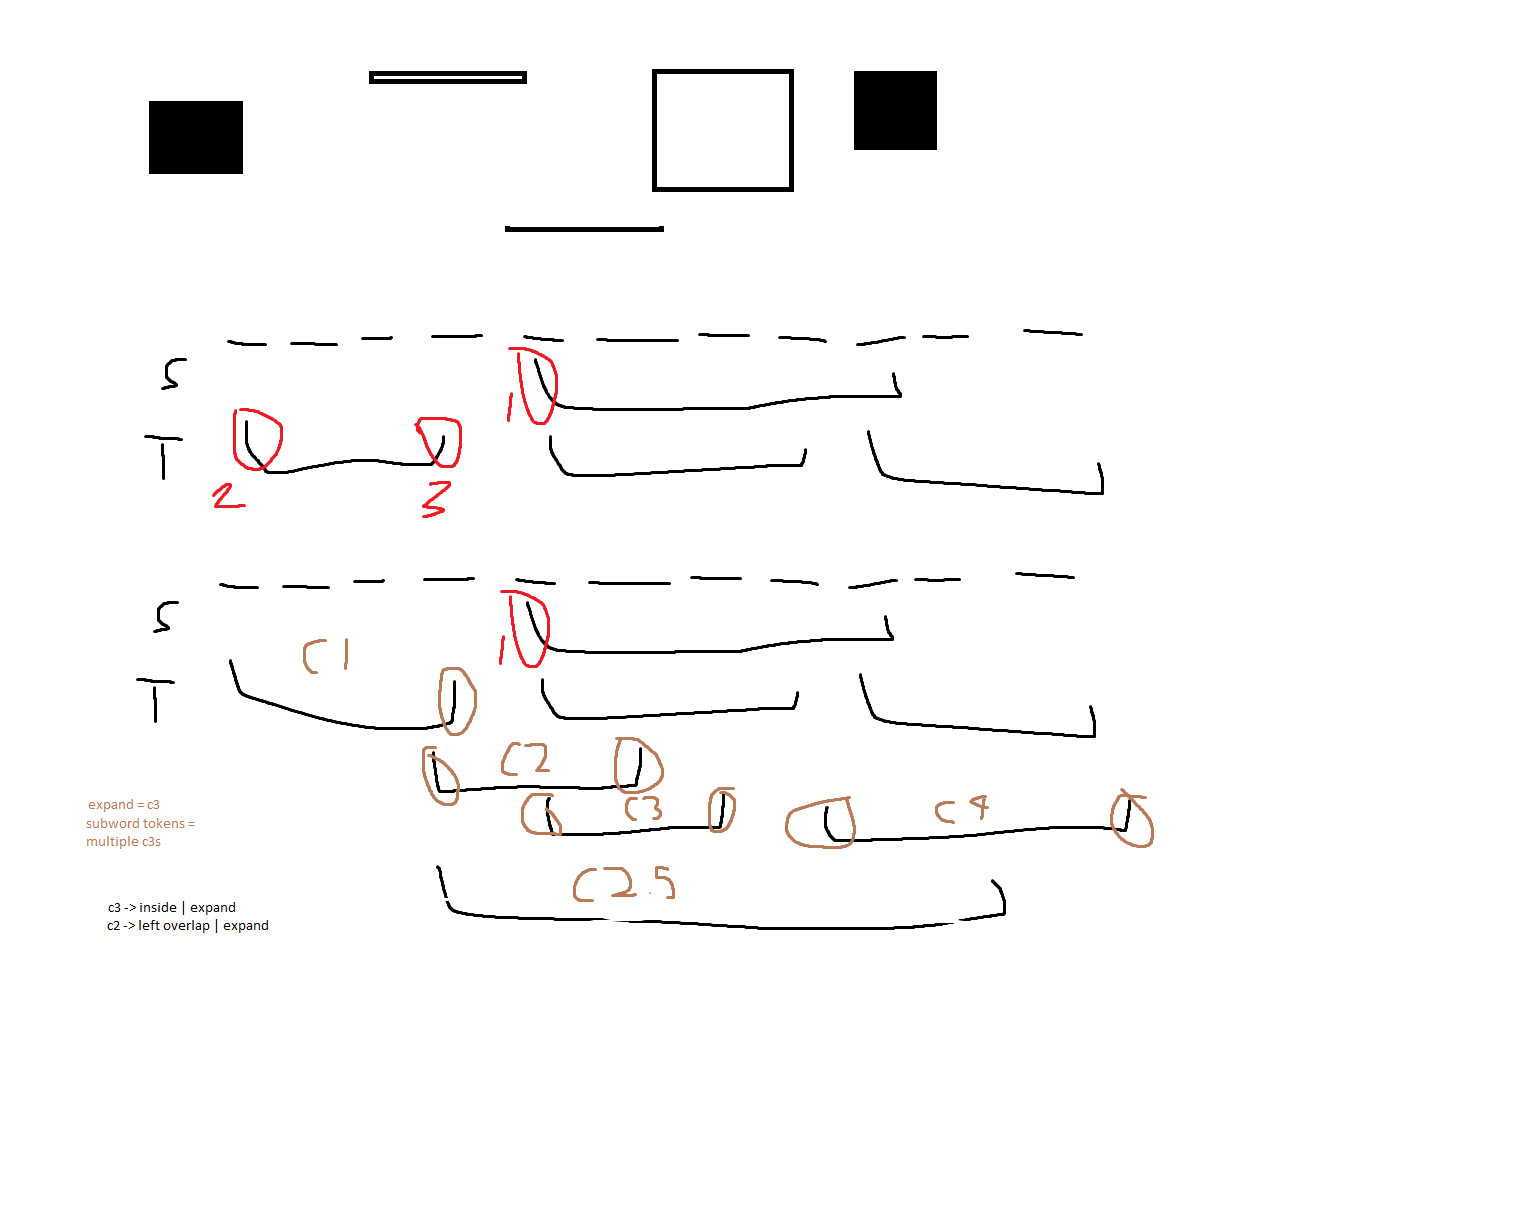 S
1
T
2
3
S
C1
1
T
C2
C3
C4
expand = c3
subword tokens =
multiple c3s
C2.5
c3 -> inside | expand
c2 -> left overlap | expand